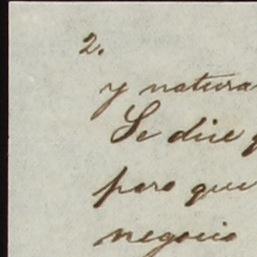 2.
y natura
Se dice q
para que
negocio